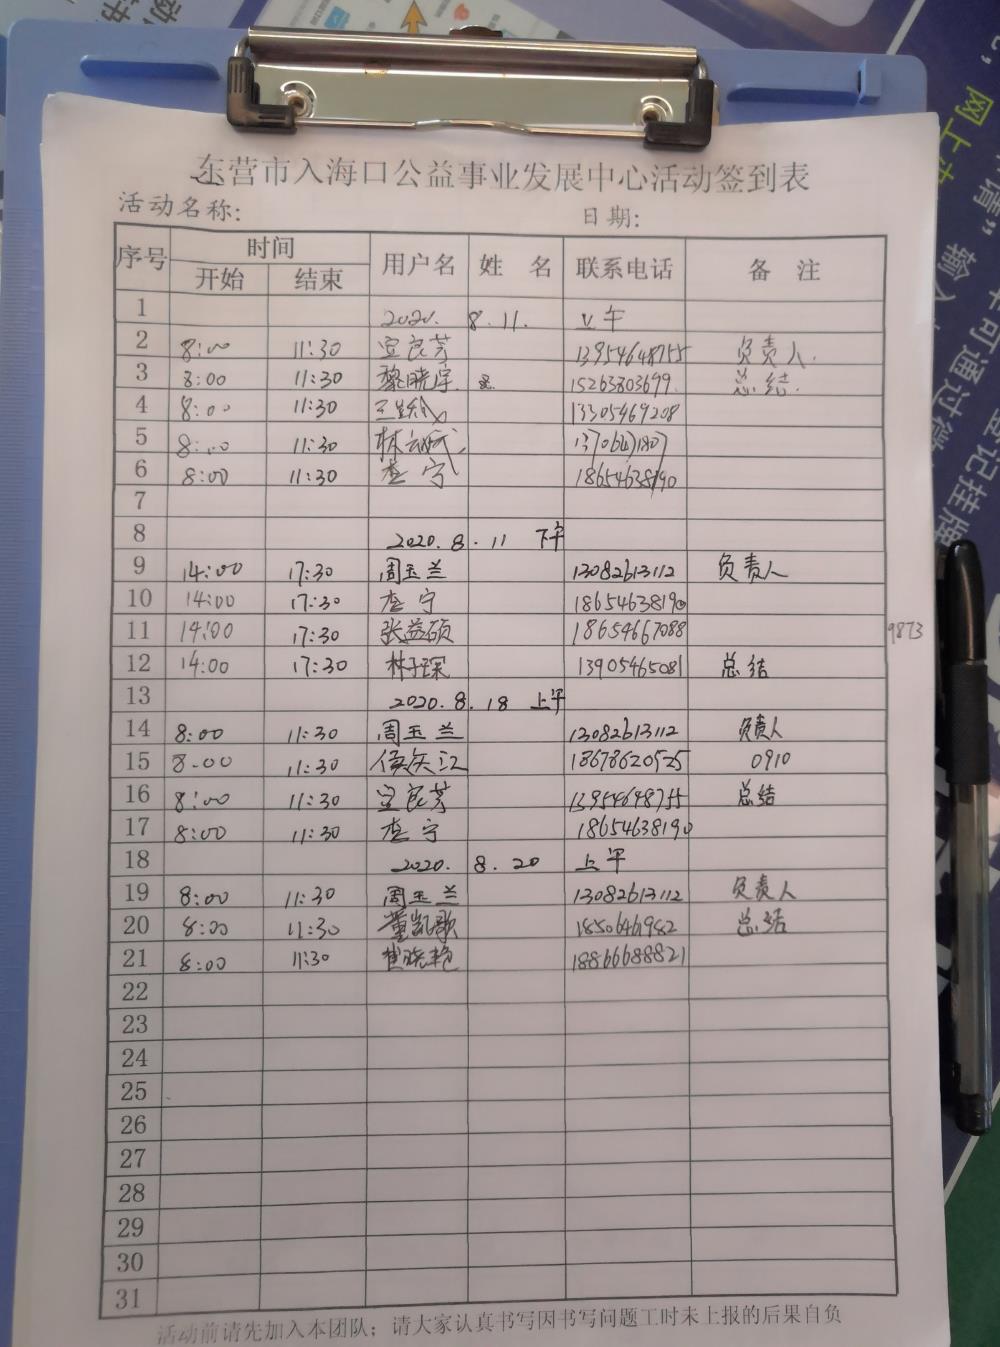 东营市入海口公益事业发展中心活动签到表
活动名称: 日期:
序号 时间 用户名 姓 名 联系电话 备 注
开始 结束
1 2020. 8.11. 上午
2 8:00 11:30 宜良芳 13954648755 负责人.
3 8:00 11:30 黎晓宇 15263803699 总结.
4 8:00 11:30 13305469208
5 8:00 11:30 林
6 8:00 11:30 李宁 18654638190
7
8 2020.8.11 下午
9 14:00 17:30 周玉兰 13082613112 负责人
10 14:00 17:30 李宁 18654638190
11 14:00 17:30 张益硕 18654667088 9873
12 14:00 17:30 林子琛 13905465081 总结
13 2020.8.18 上午
14 8:00 11:30 周玉兰 13082613112 负责人
15 8:00 11:30 侯矢江 18678620525 0910
16 8:00 11:30 宜良芳 13954648755 总结
17 8:00 11:30 李宁 18654638190
18 2020. 8.20 上午
19 8:00 11:30 周玉兰 13082613112 负责人
20 8:00 11:30 董凯歌 18506461982 总结
21 8:00 11:30 崔晓艳 18866688821
22
23
24
25
26
27
28
29
30
31
活动前请先加入本团队；请大家认真书写因书写问题工时未上报的后果自负